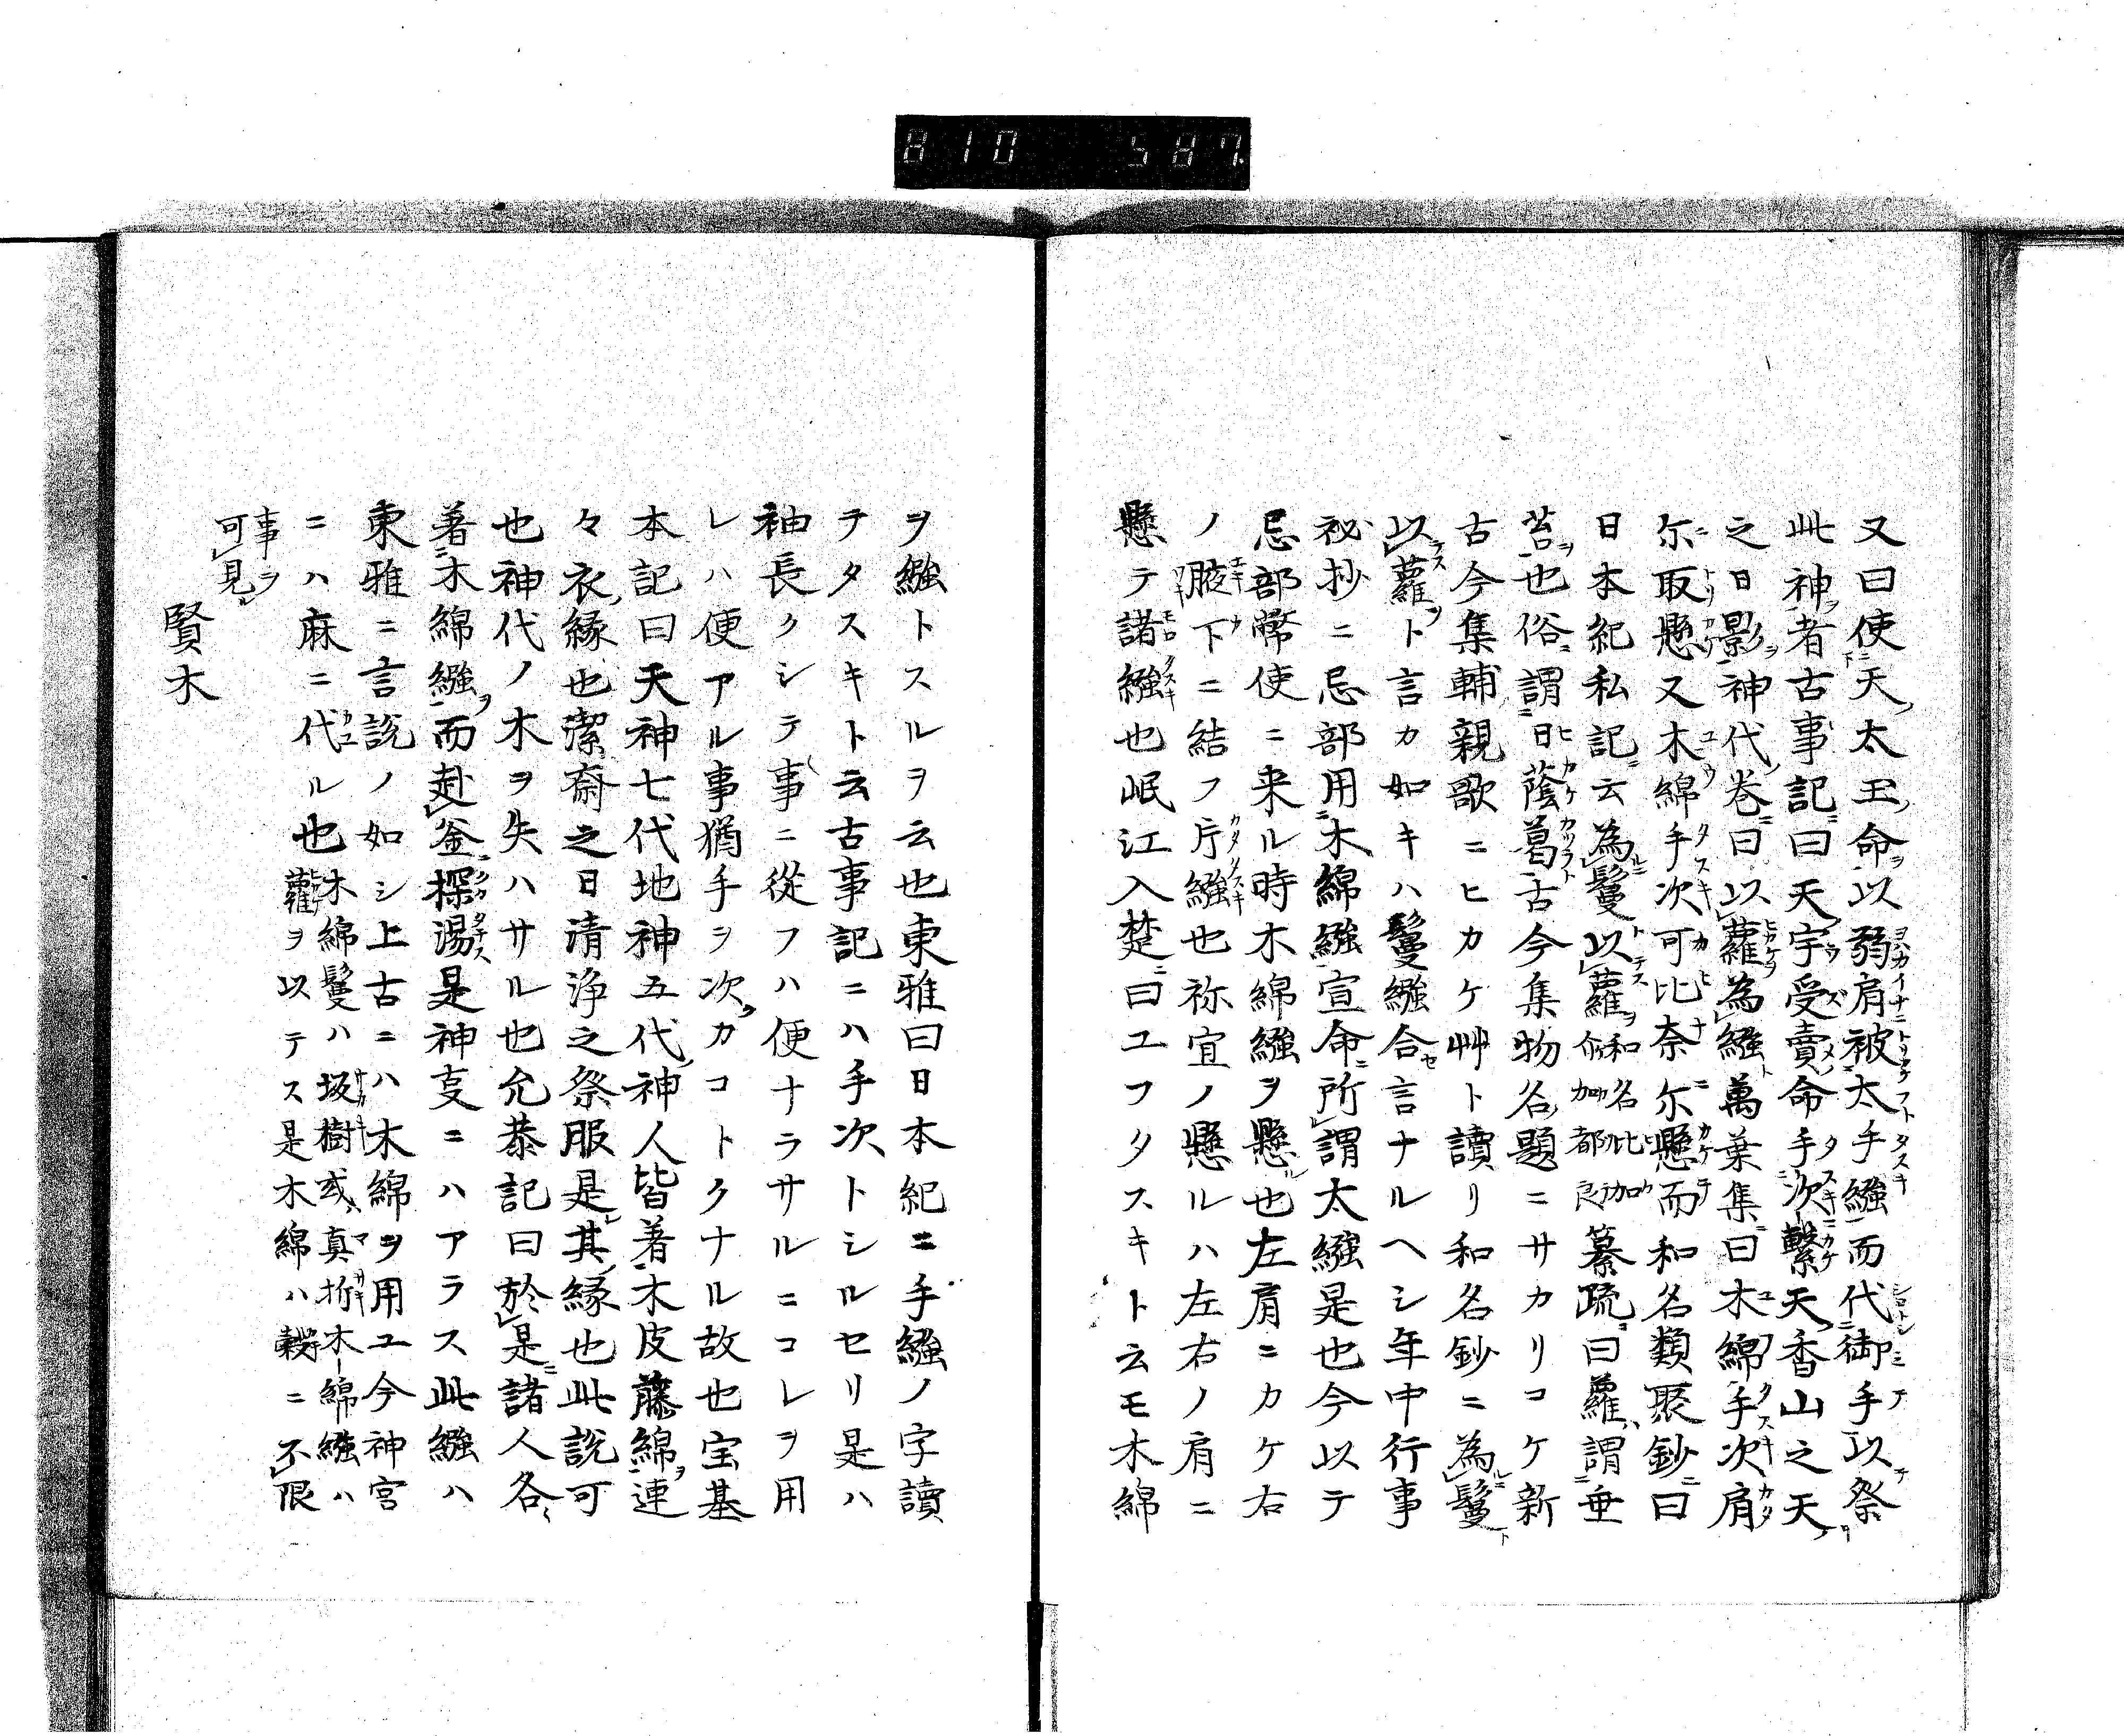 810 587
又曰使天太玉命以弱肩被太手繦而代御手以祭
此神者古事記曰天宇受賣命手次繫天香山之天
之日影神代巻曰以蘿為繦萬葉集曰木綿手次肩
尓取懸又木綿手次可比奈尓懸而和名類聚鈔曰
日本紀私記云為鬘以蘿和名比加介加都良纂疏曰蘿謂垂
苔也俗謂日蔭葛古今集物名題ニサカリコケ新
古今集輔親歌ニヒカケ艸ト讀リ和名鈔ニ為鬘
以蘿ト言カ如キハ鬘繦合言ナルヘシ年中行事
祕抄ニ忌部用木綿繦宣命所謂太繦是也今以テ
忌部幣使ニ来ル時木綿繦ヲ懸也左肩ニカケ右
ノ腋下ニ結フ片繦也祢宜ノ懸ルハ左右ノ肩ニ
懸テ諸繦也岷江入楚曰ユフタスキト云モ木綿
ヲ繦トスルヲ云也東雅曰日本紀ニ手繦ノ字讀
テタスキト云古事記ニハ手次トシルセリ是ハ
袖長クシテ事ニ從フハ便ナラサルニコレヲ用
レハ便アル事猶手ヲ次カコトクナル故也宝基
本記曰天神七代地神五代神人皆著木皮藤綿連
々衣縁也潔齋之日清浄之祭服是其縁也此説可
也神代ノ木ヲ失ハサル也允恭記曰於是諸人各
著木綿繦而赴釜探湯是神㕝ニハアラス此繦ハ
東雅ニ言説ノ如シ上古ニハ木綿ヲ用ユ今神宮
ニハ麻ニ代ル也木綿鬘ハ坂樹或真折木綿繦ハ
蘿ヲ以テス是木綿ハ穀ニ不限
事ヲ
可見
賢木